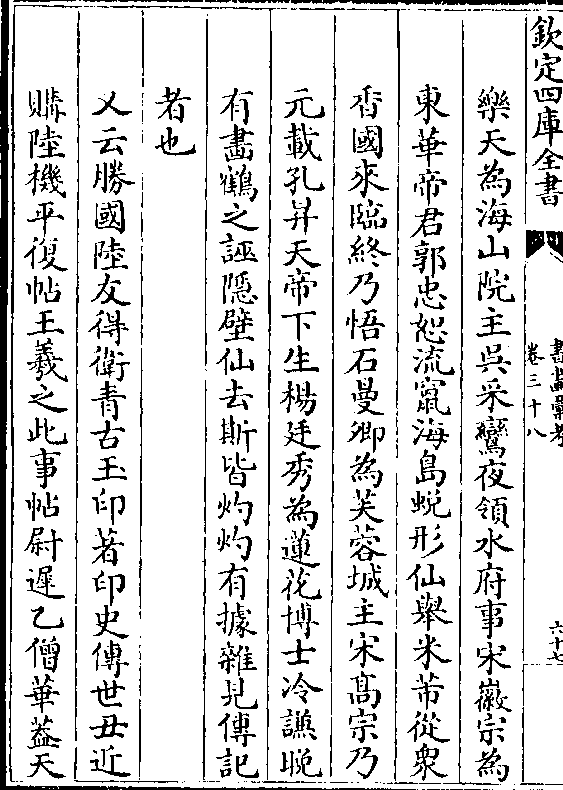 欽定四庫全書
書畫彙考
卷三十八
六十七
樂天為海山院主吳采鸞夜領水府事宋徽宗為
東華帝君郭忠恕流竄海島蛻形仙舉米芾從衆
香國來臨終乃悟石曼卿為芙蓉城主宋髙宗乃
元載孔昇天帝下生楊廷秀為蓮花博士冷謙晚
有畵鶴之誣隠壁仙去斯皆灼灼有據雜見傳記
者也
又云勝國陸友得衛青古玉印著印史傳世丑近
購陸機平復帖王羲之此事帖尉遲乙僧華葢天